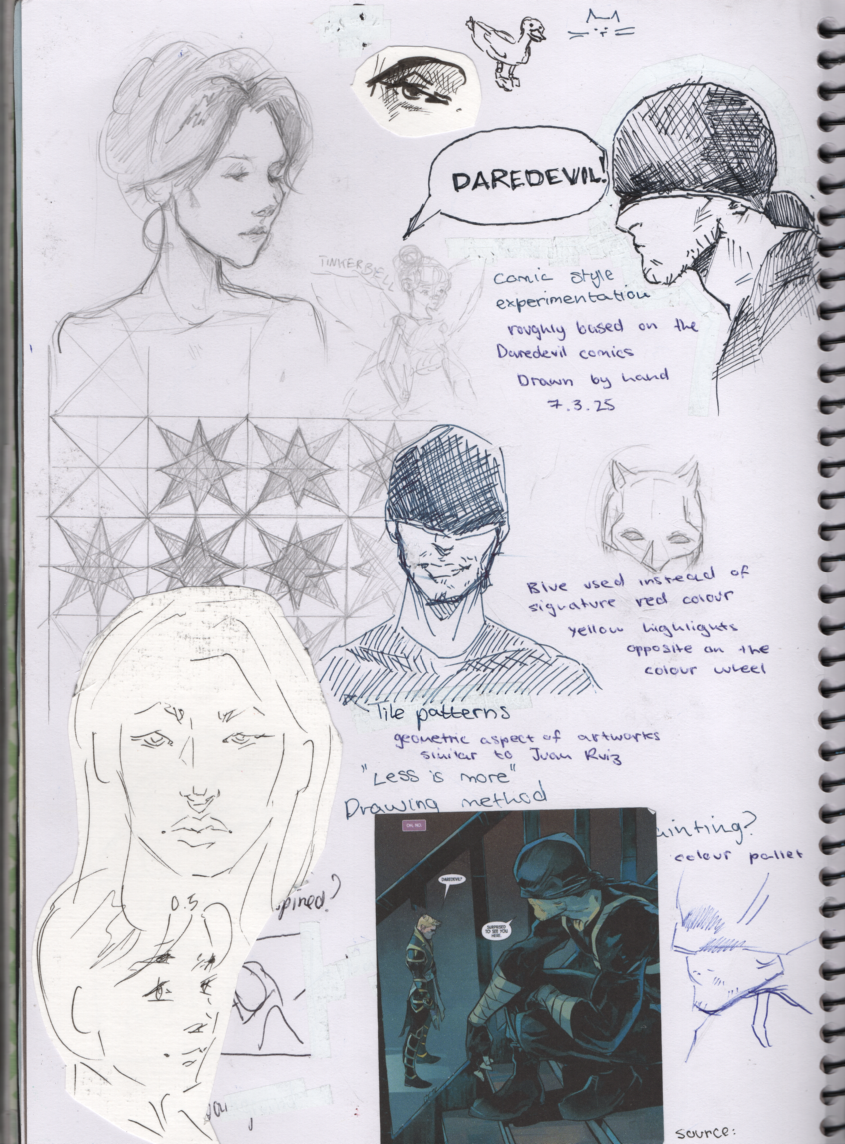 DAREDEVIL!
TINKERBELL
Comic style
experimentation
roughly based on the
Daredevil comics
Drawn by hand
7.3.25
Blue used instead of
signature red colour
yellow highlights
opposite on the
colour wheel
Tile patterns
geometric aspect of artworks
similar to Juan Ruiz
"Less is more"
Drawing method
ainting?
colour pallet
0.5
pined?
DAREDEVIL?
SURPRISED
TO SEE YOU
HERE.
you
source: